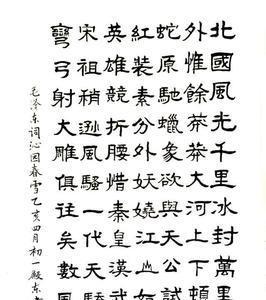 北國風光千里冰封萬里
外惟餘莽莽大河上下頓
蛇原馳蠟象欲與天公試
紅裝素分外妖嬈江山如
英雄競折腰惜秦皇漢武
宋祖稍遜風騷一代天
彎弓射大雕俱往矣數風
毛泽东詞沁园春雪乙亥四月初一殿东